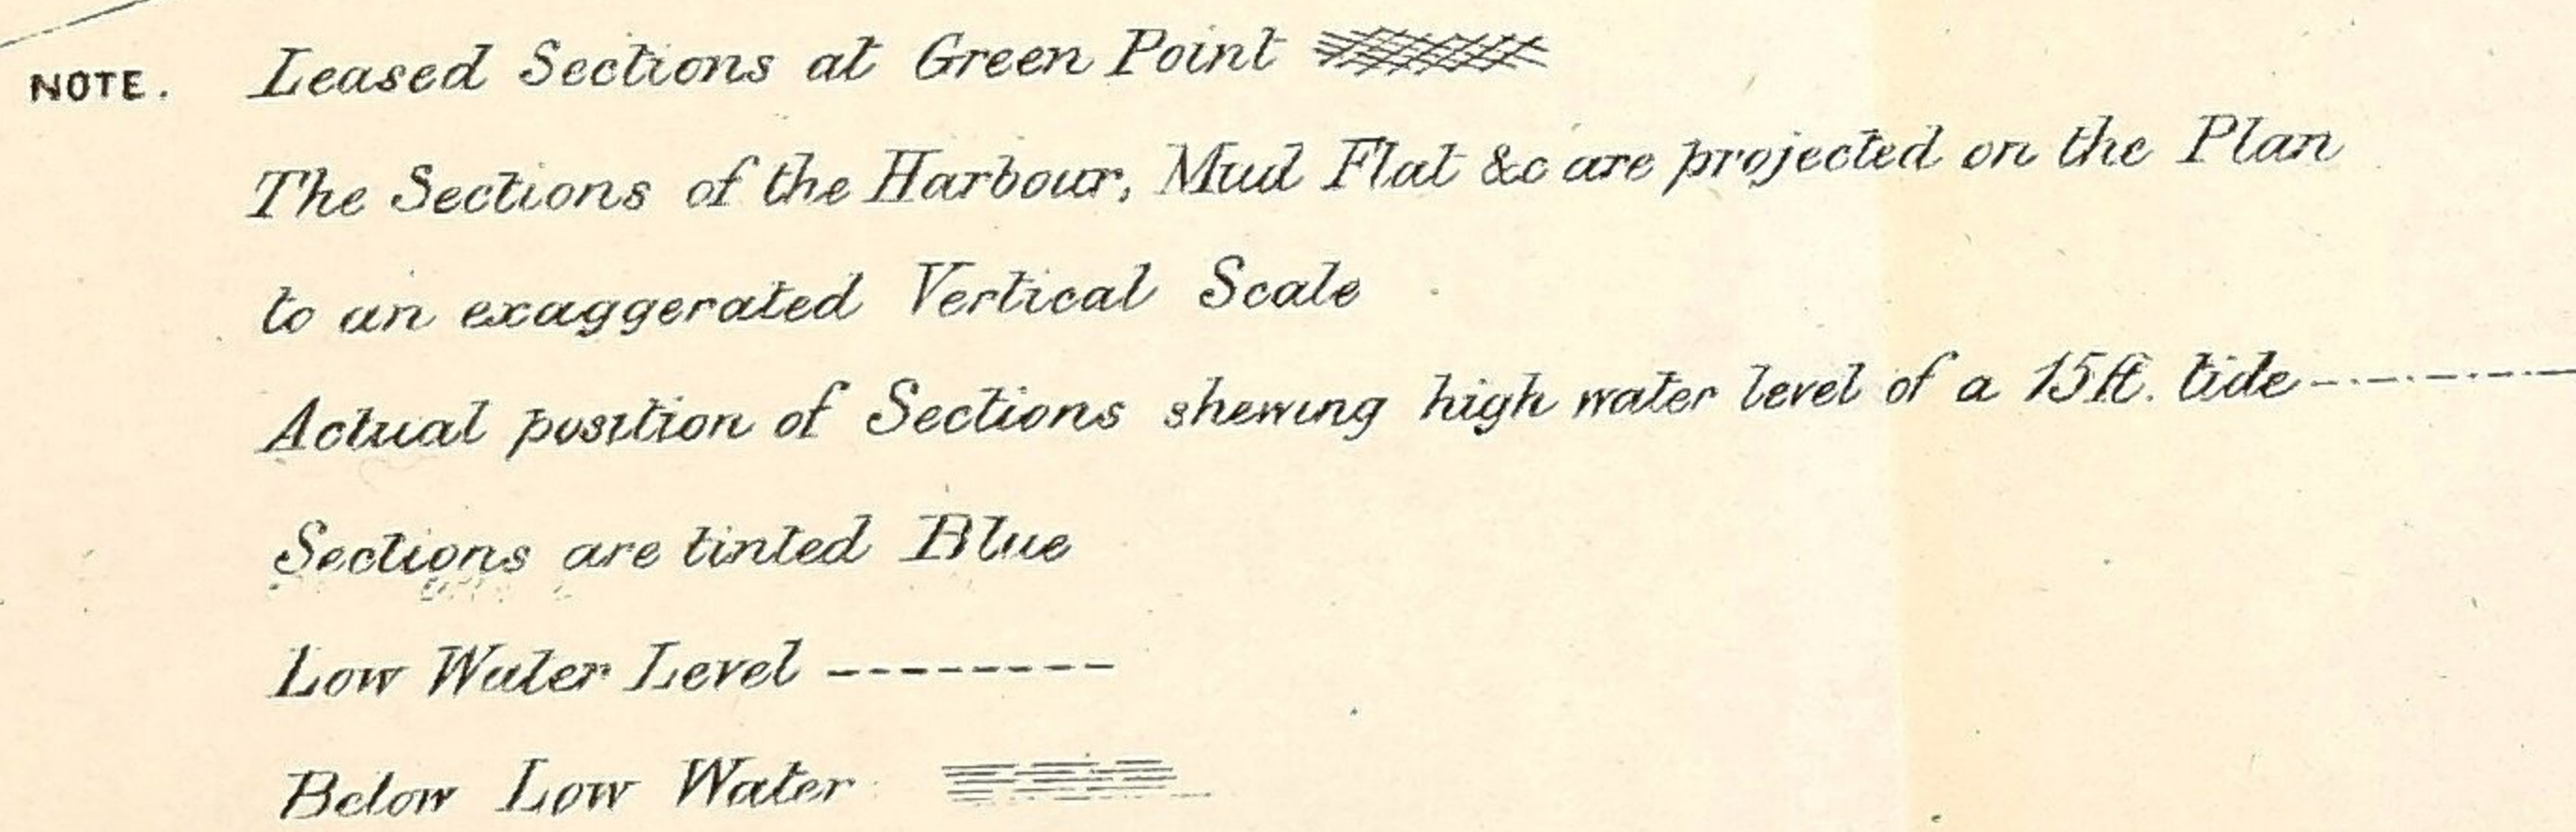 NOTE. Leased Sections at Green Point
The Sections of the Harbour, Mud Flat &c are projected on the Plan
to an exaggerated Vertical Scale
Actual position of Sections shewing high water level of a 15ft. tide
Sections are tinted Blue
Low Water Level
Below Low Water